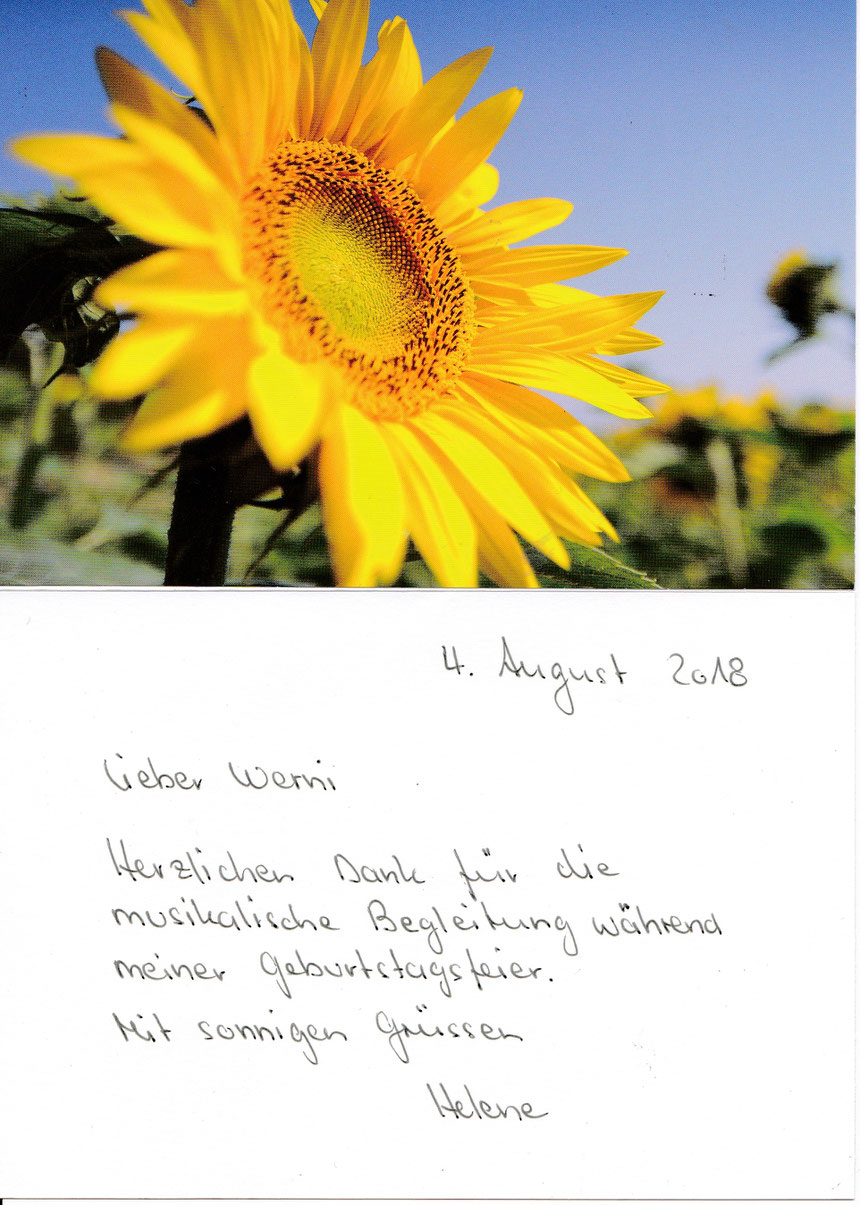 4. August 2018
Lieber Werni
Herzlichen Dank für die
musikalische Begleitung während
meiner Geburtstagsfeier.
Mit sonnigen Grüssen
Helene